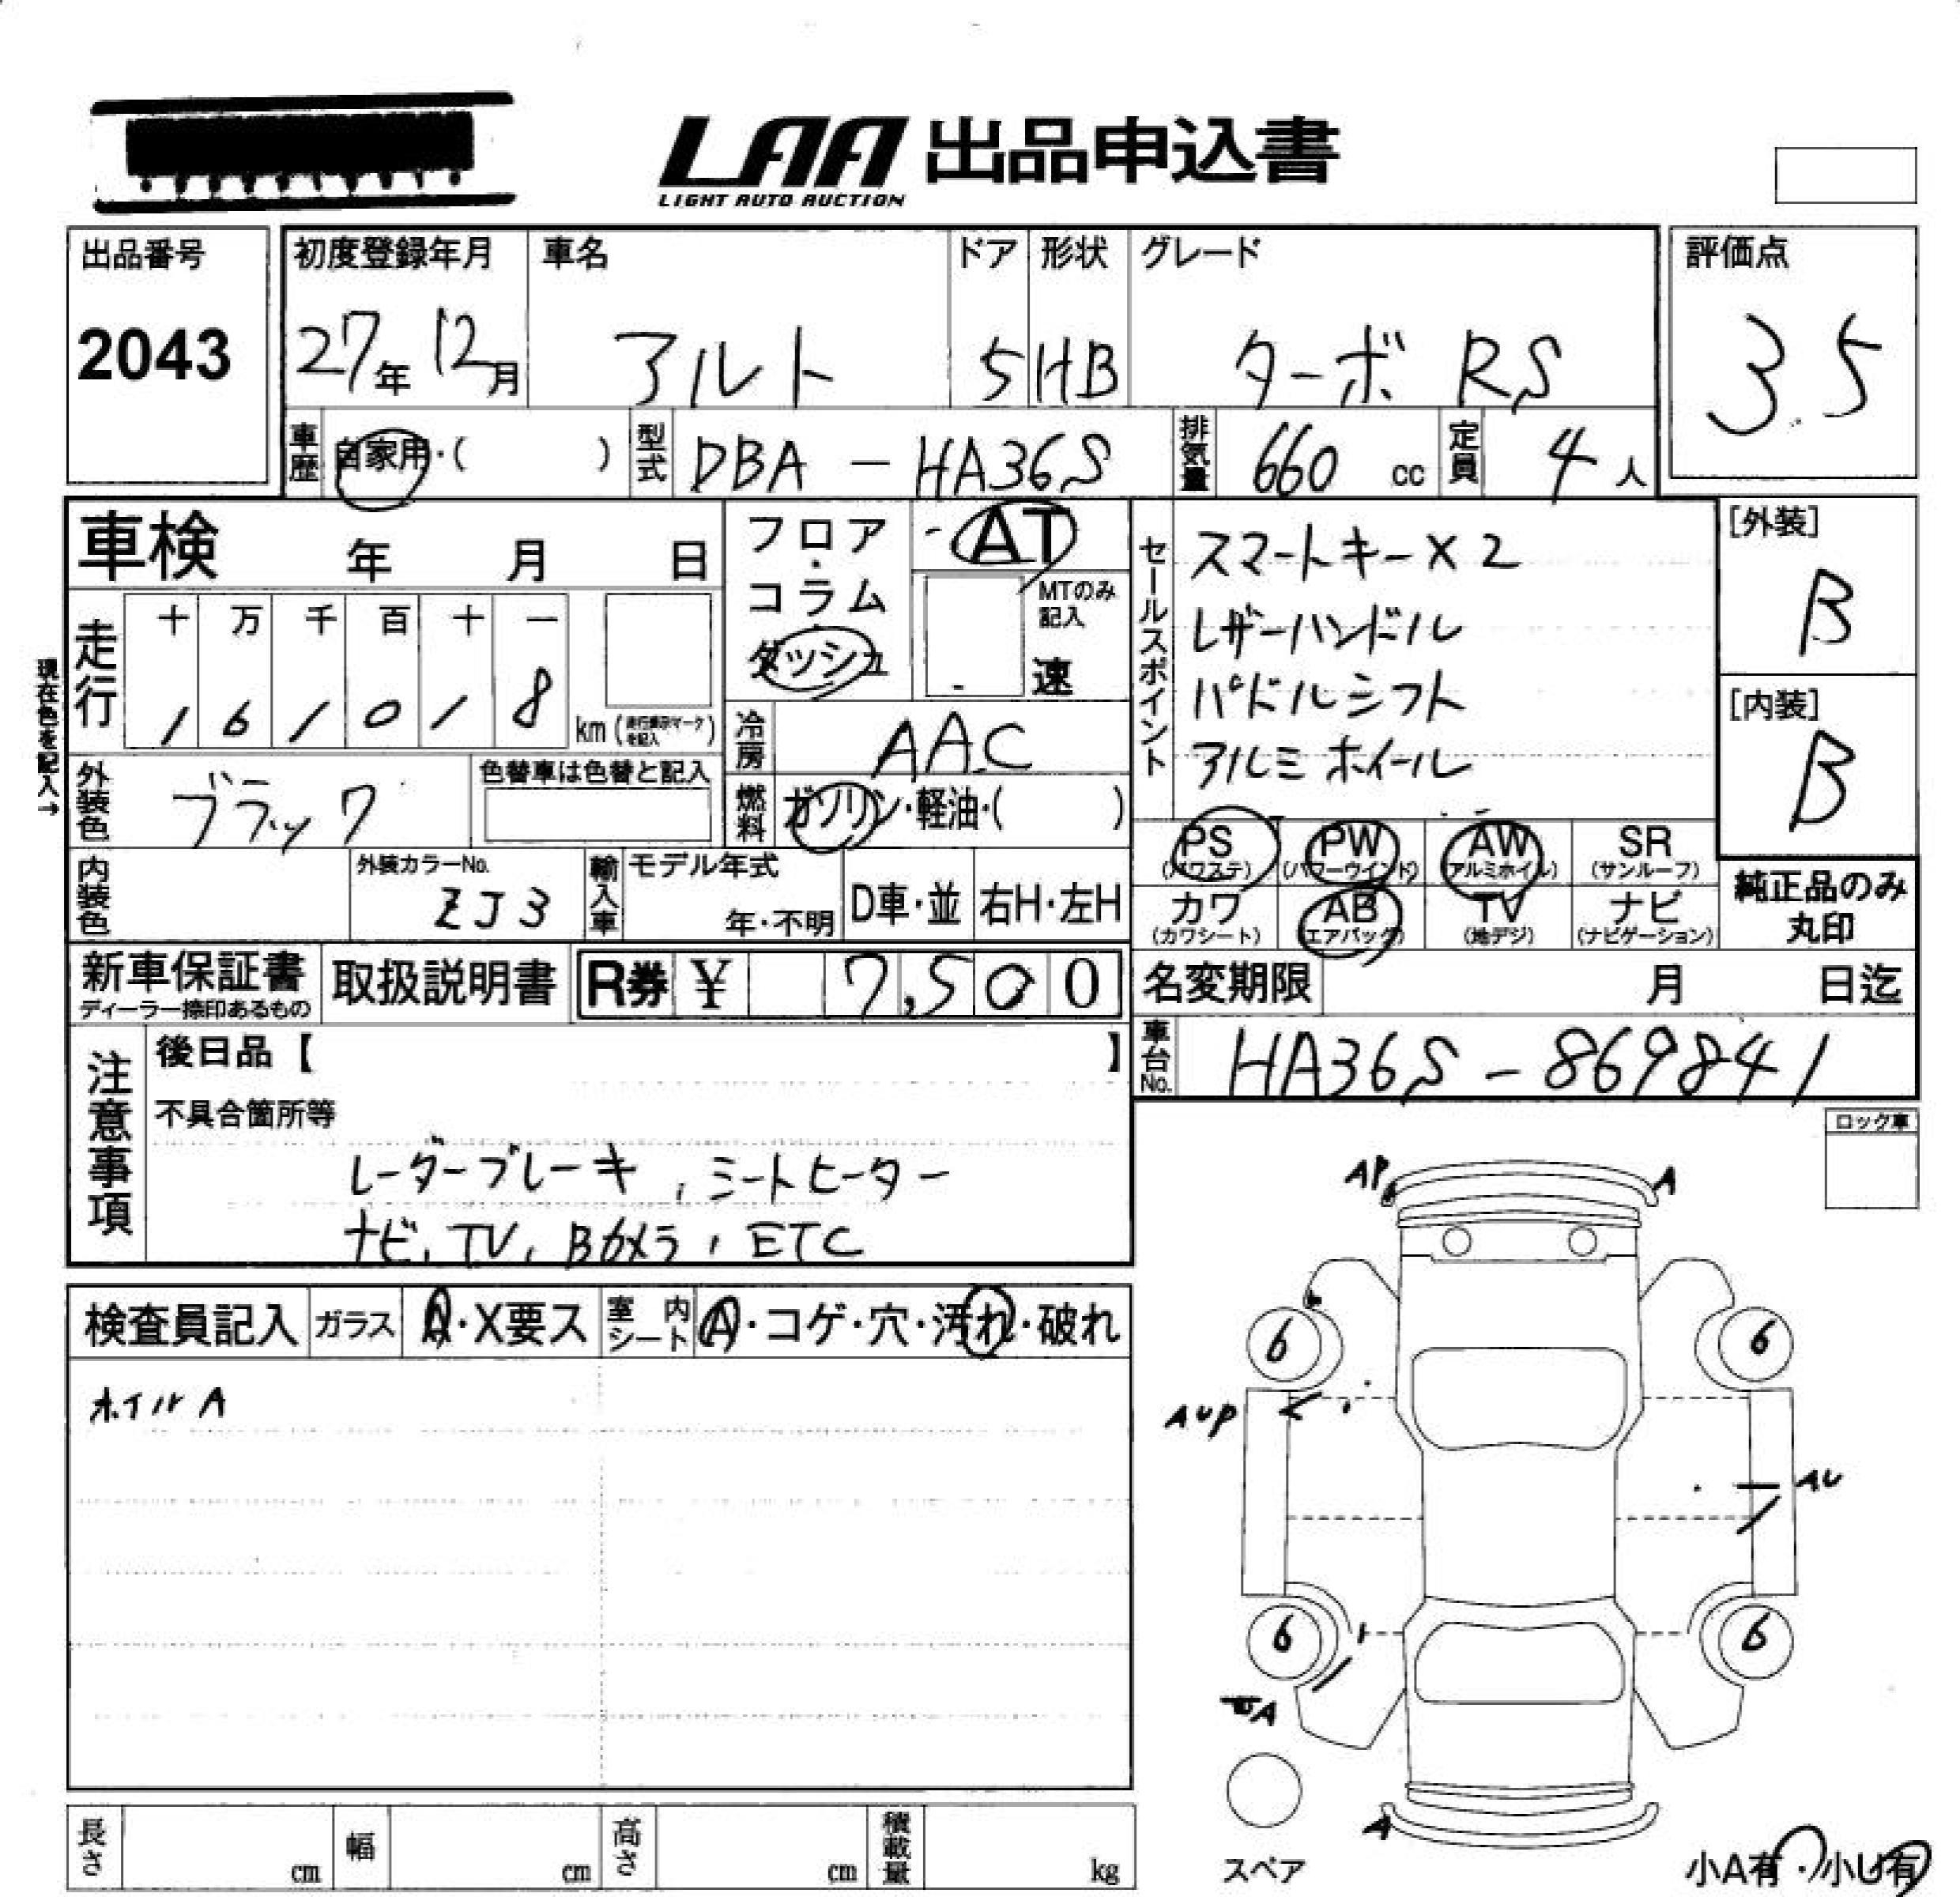 LAA 出品申込書
LIGHT AUTO AUCTION
出品番号
2043
初度登録年月
27年 12月
車名
アルト
ドア
5
形状
HB
グレード
ターボ RS
評価点
3.5
車歴 自家用・( )
型式 DBA - HA36S
排気量 660 cc
定員 4 人
車検 年 月 日
フロア
・
コラム
・
ダッシュ
AT
MTのみ
記入
速
セールスポイント
スマートキー×2
レザーハンドル
パドルシフト
アルミホイール
[外装]
B
[内装]
B
現在色を記入→
走行
十 万 千 百 十 一
1 6 1 0 1 8
km (
を記入 )
冷房 AAC
外装色 ブラック
色替車は色替と記入
燃料 ガソリン・軽油・( )
PS PW AW SR
(パワステ) (パワーウインド) (アルミホイル) (サンルーフ)
カワ AB TV ナビ
(カワシート) (エアバッグ) (地デジ) (ナビゲーション)
純正品のみ
丸印
内装色
外装カラーNo.
ZJ3
輸入車
モデル年式
年・不明
D車・並
右H・左H
新車保証書
ディーラー捺印あるもの
取扱説明書
R券 ¥ 7,500
名変期限 月 日迄
車台No. HA36S-869841
注意事項
後日品【 】
不具合箇所等
レーダーブレーキ, シートヒーター
ナビ, TV, Bカメラ, ETC
ロック車
検査員記入
ガラス A・X要ス
室内シート A・コゲ・穴・汚れ・破れ
ホイルA
AP A
6 6
AUP
AU
6 6
A
A
スペア
小A有・小U有
長さ cm
幅 cm
高さ cm
積載量 kg